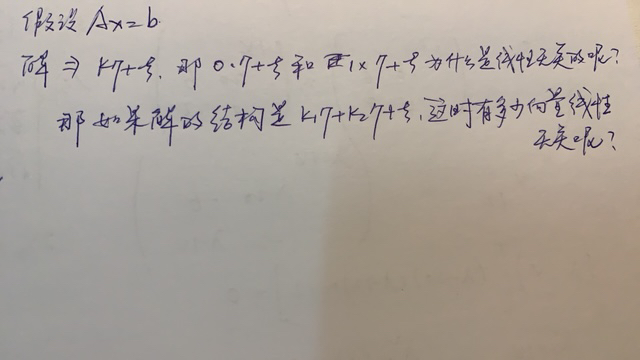 假设 Ax=b.
解 ⇒ kη+ξ. 那 0·η+ξ 和 1×η+ξ 为什么是线性无关的呢?
那如果解的结构是 k₁η+k₂η+ξ, 这时有多少向量线性
无关呢?